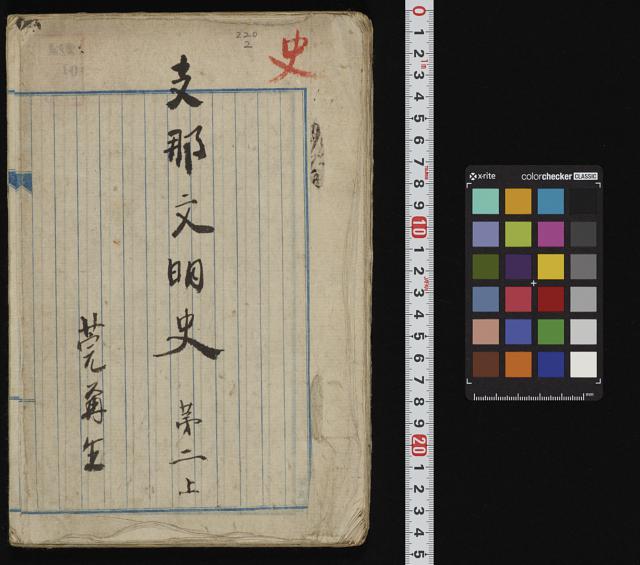 220
2
史
支那文明史
第二上
x-rite
colorchecker CLASSIC
mm
0
1
2
3
4
5
6
7
8
9
10
1
2
3
4
5
6
7
8
9
20
1
2
3
4
5